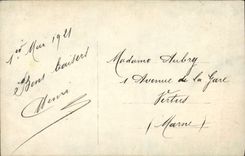 1er Mai 1921
Bons baisers
Henri
Madame Aubry
1 Avenue de la Gare
Vertus
(Marne)